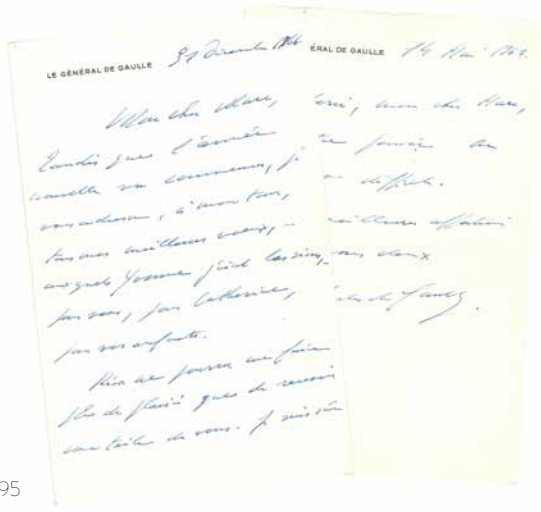 LE GÉNÉRAL DE GAULLE 31 Décembre 1966
Mon cher Marc,
Tandis que l'année
nouvelle va commencer, je
vous adresse, à mon tour,
tous mes meilleurs voeux,
auxquels Yvonne joint les siens,
pour vous, pour Catherine,
pour vos enfants.
Rien ne pourra me faire
plus de plaisir que de recevoir
une toile de vous. Je suis sûr
ÉRAL DE GAULLE 14 Mai
mon cher Marc,
difficile.
meilleure affection
deux
de Gaulle.
95